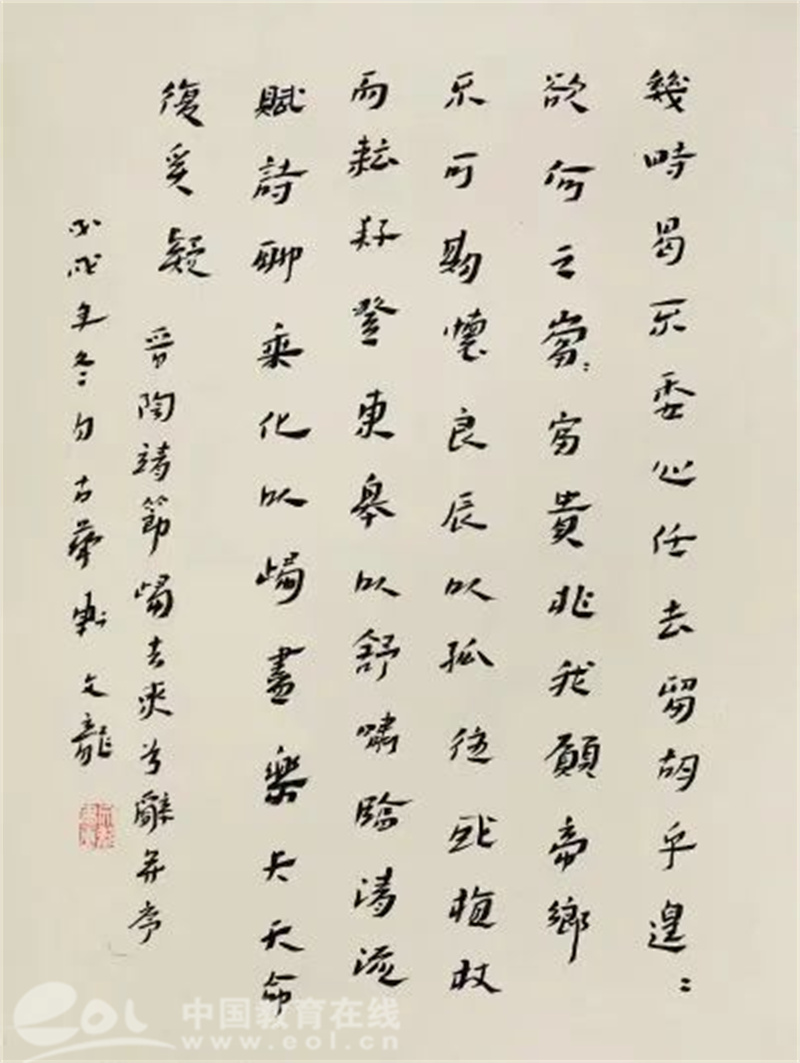 幾時曷不委心任去留胡乎遑:
欲何之富貴非我願帝鄉
不可期懷良辰以孤往或植杖
而耘耔登東皋以舒嘯臨清流
賦詩聊乘化以歸盡樂夫天命
復奚疑
晉陶靖節歸去來兮辭并序
戌年冬古文龍
eol 中国教育在线
www.eol.cn